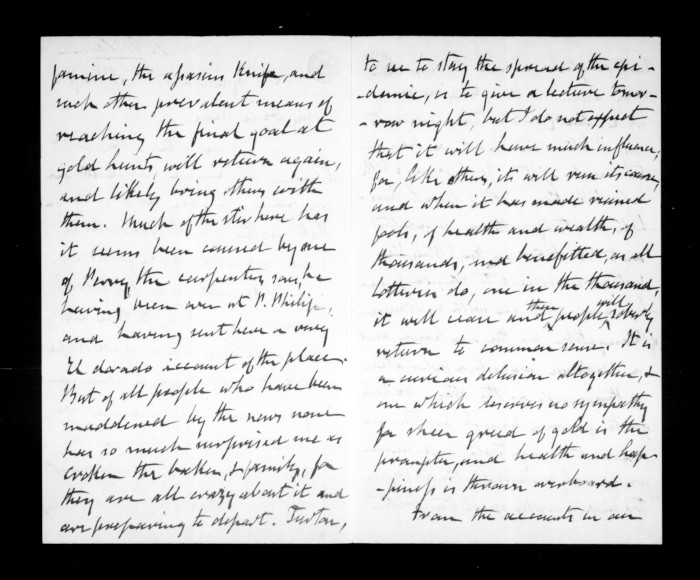 famine, the assasins Knife, and
such other prevalent means of
reaching the final goal at
gold hunts will return again,
and likely bring others with
them. Much of the stir here has
it seems been caused by one
of Perry, the carpenters sons, he
having been over at P. Philip,
and having sent here a very
El dorado account of the place.
But of all people who have been
maddened by the news none
has so much surprised me as
the baker, & family, for
they are all crazy about it and
are preparing to depart. Turton,
to us to stay the spread of the epi-
-demic, is to give a lecture tomor-
-row night, but I do not expect
that it will have much influence,
for, like others, it will run its course,
and when it has made ruined
fools, of health and wealth, of
thousands, and benefitted, as all
Lotteries do, one in the thousand,
it will cease and then people will soberly
return to common sense. It is
a curious delusion altogether, &
one which deserves no sympathy
for sheer greed of gold is the
prompter, and health and hap-
-piness is thrown overboard.
From the accounts in our